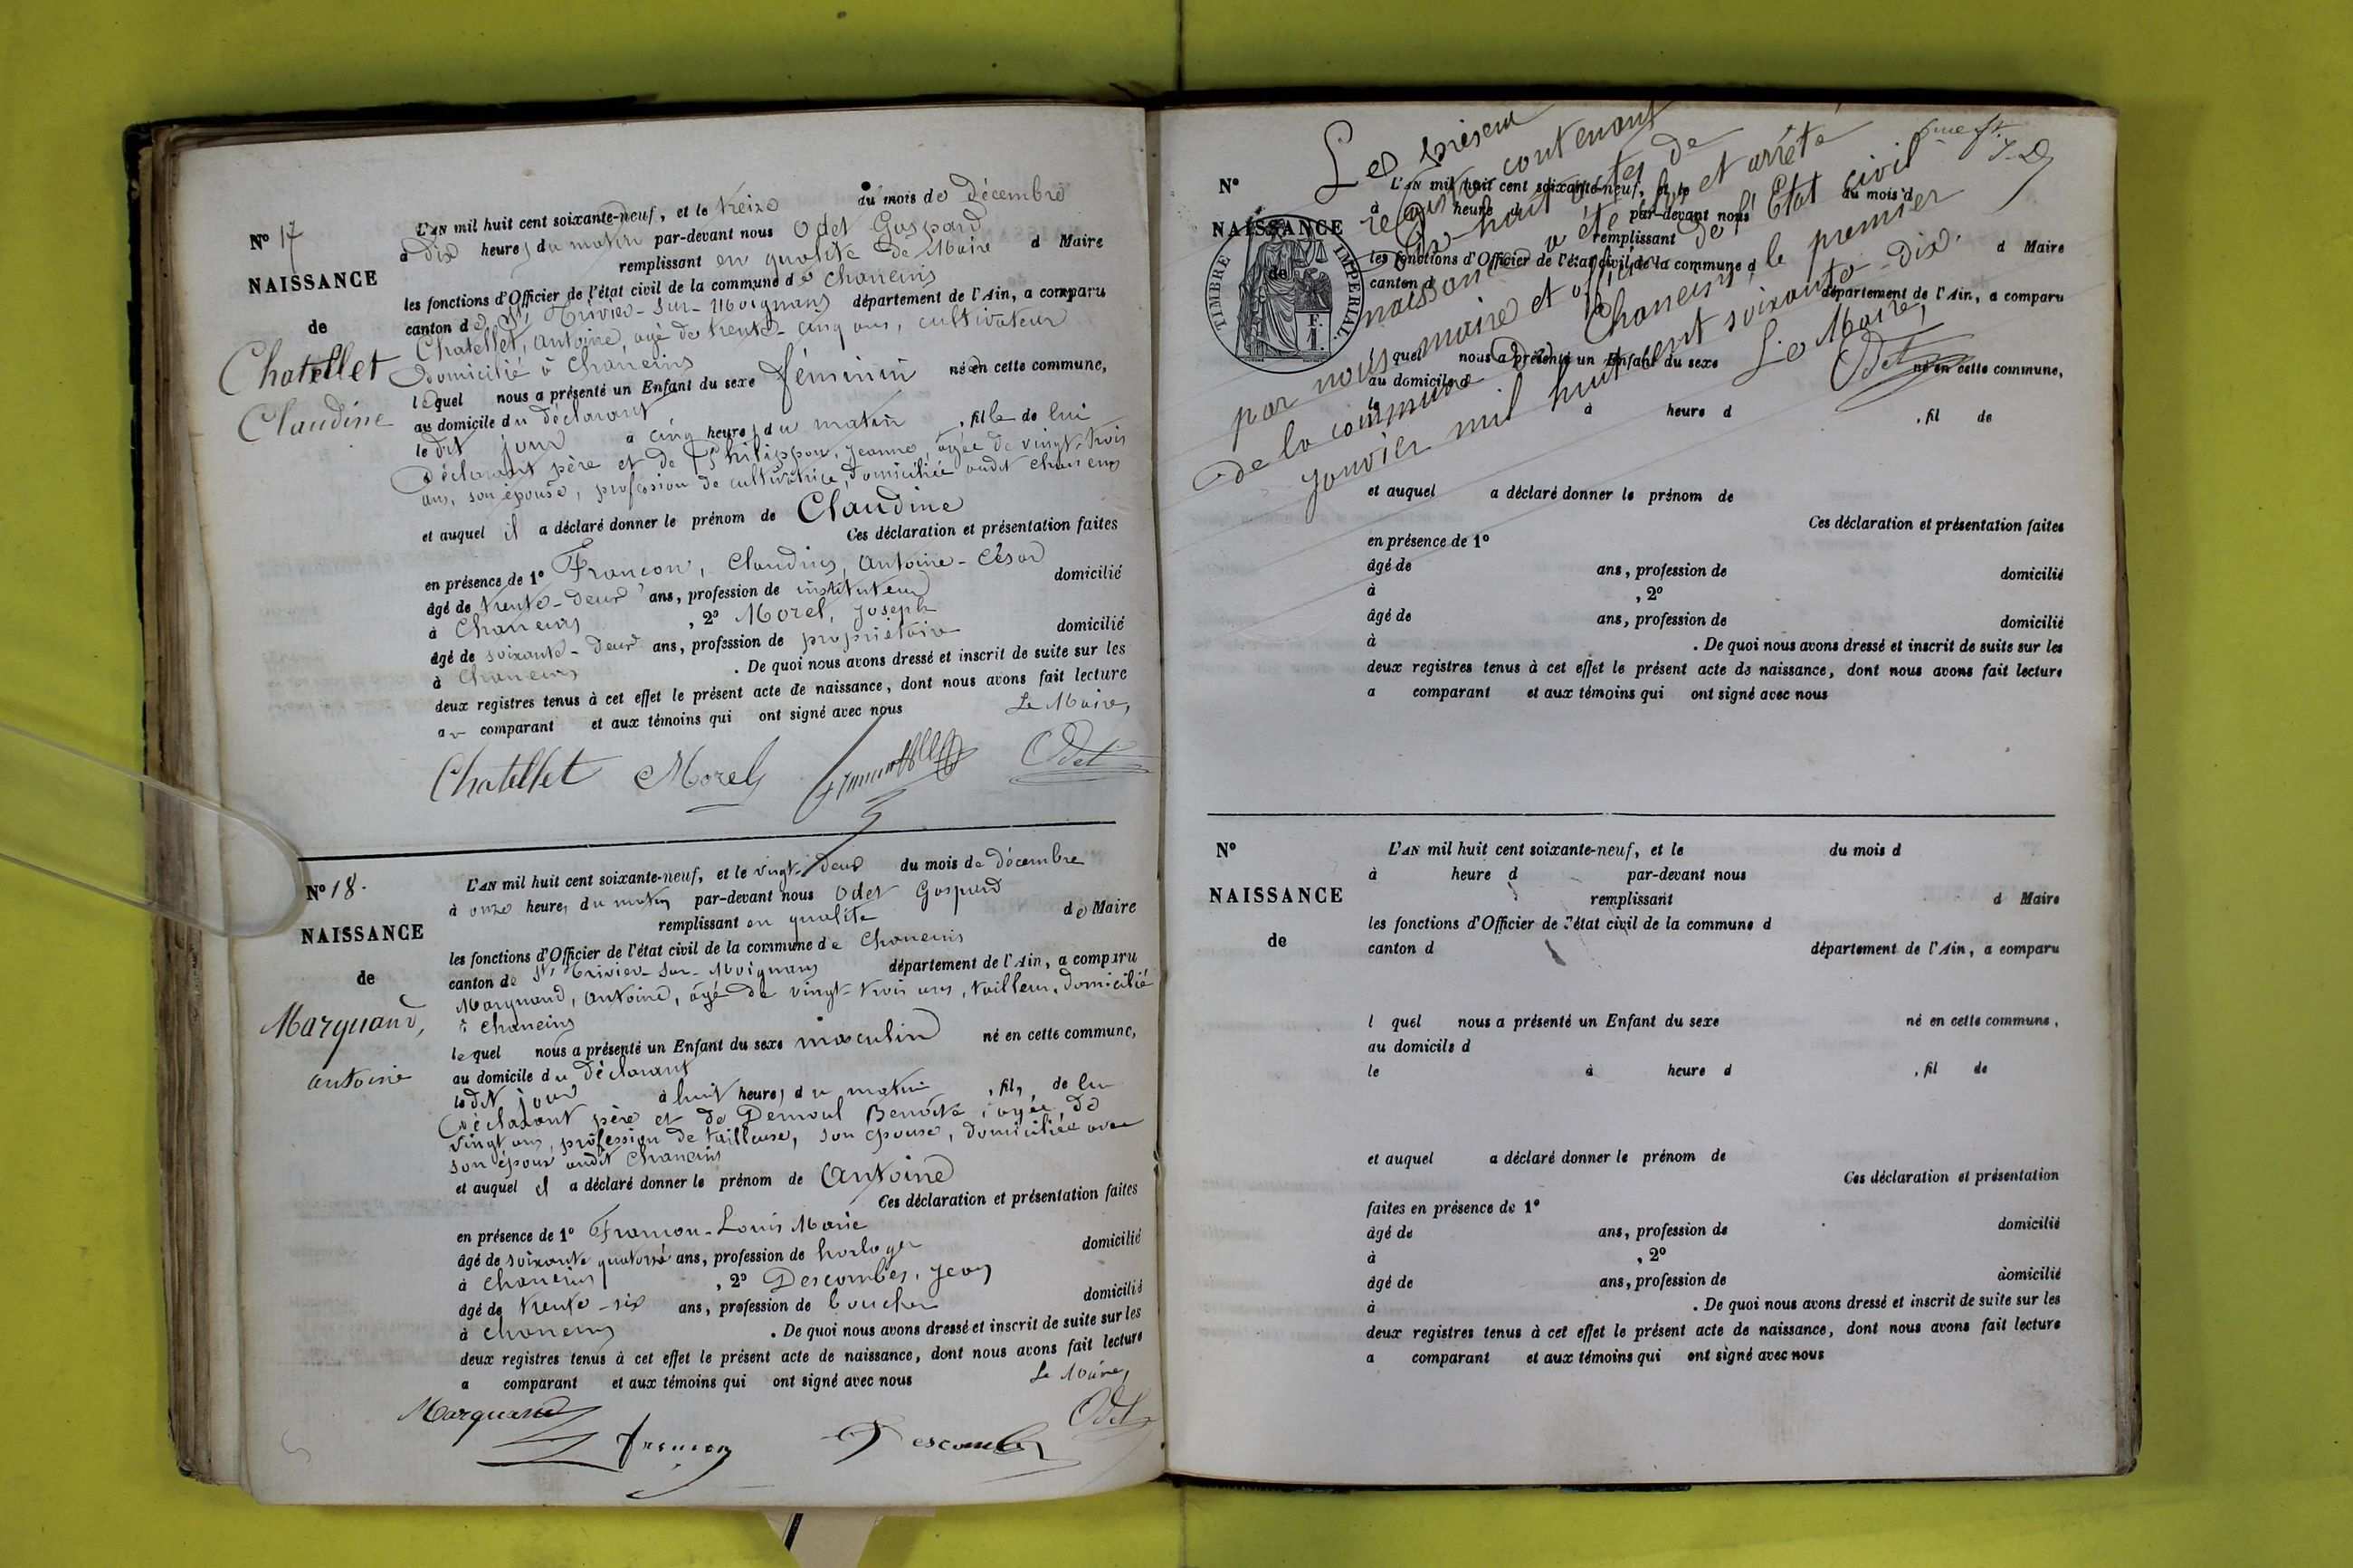 N° 17
NAISSANCE
de
Chatellet
Claudine
L'AN mil huit cent soixante-neuf, et le treize du mois de Décembre
à dix heures du matin par-devant nous Odet Gaspard
remplissant en qualité de Maire d Maire
les fonctions d'Officier de l'état civil de la commune de Chaneins
canton de St Trivier-sur-Moignans département de l'Ain, a comparu
Chatellet, Antoine, agé de trente-cinq ans, cultivateur
Domicilié à Chaneins
lequel nous a présenté un Enfant du sexe féminin née en cette commune,
au domicile du déclarant
ledit jour à cinq heures du matin, fille de lui
Déclarant père et de Philippon, Jeanne, âgée de vingt-trois
ans, son épouse, profession de cultivatrice, domiciliée audit Chaneins
et auquel il a déclaré donner le prénom de Claudine
Ces déclaration et présentation faites
en présence de 1° Francon, Claudius, Antoine-César
âgé de trente-deux ans, profession de instituteur domicilié
à Chaneins, 2° Morel, Joseph
âgé de soixante-deux ans, profession de propriétaire domicilié
à Chaneins. De quoi nous avons dressé et inscrit de suite sur les
deux registres tenus à cet effet le présent acte de naissance, dont nous avons fait lecture
au comparant et aux témoins qui ont signé avec nous
Le Maire,
Chatellet Morel Odet
N° 18.
NAISSANCE
de
Marquand,
Antoine
L'AN mil huit cent soixante-neuf, et le vingt-deux du mois de décembre
à onze heures du matin par-devant nous Odet Gaspard
remplissant en qualité de Maire
les fonctions d'Officier de l'état civil de la commune de Chaneins
canton de St Trivier-sur-Moignans département de l'Ain, a comparu
Marquand, Antoine, âgé de vingt-trois ans, tailleur, domicilié
à Chaneins
lequel nous a présenté un Enfant du sexe masculin né en cette commune,
au domicile du Déclarant
ledit jour à huit heures du matin, fils de lui
Déclarant père et de Benoîte, âgée de
vingt ans, profession de tailleuse, son épouse, domiciliée avec
son époux audit Chaneins
et auquel il a déclaré donner le prénom de Antoine
Ces déclaration et présentation faites
en présence de 1° Francon-Louis Marie
âgé de soixante quatorze ans, profession de horloger domicilié
à Chaneins, 2° Descombes, Jean
âgé de trente-six ans, profession de boucher domicilié
à Chaneins. De quoi nous avons dressé et inscrit de suite sur les
deux registres tenus à cet effet le présent acte de naissance, dont nous avons fait lecture
a comparant et aux témoins qui ont signé avec nous
Le Maire,
Marquand Odet
Francon Descombes
Le présent
registre contenant
dix-huit actes de
naissance a été clos et arrêté
par nous maire et officier de l'Etat civil
de la commune de Chaneins, le premier
janvier mil huit cent soixante-dix.
Le Maire,
Odet
N°
NAISSANCE
de
TIMBRE IMPÉRIAL.
L'AN mil huit cent soixante-neuf, et le du mois d
à heure d par-devant nous
remplissant d Maire
les fonctions d'Officier de l'état civil de la commune d
canton d département de l'Ain, a comparu
l quel nous a présenté un Enfant du sexe né en cette commune,
au domicile d
le à heure d , fil de
et auquel a déclaré donner le prénom de
Ces déclaration et présentation faites
en présence de 1°
âgé de ans, profession de domicilié
à , 2°
âgé de ans, profession de domicilié
à . De quoi nous avons dressé et inscrit de suite sur les
deux registres tenus à cet effet le présent acte de naissance, dont nous avons fait lecture
a comparant et aux témoins qui ont signé avec nous
N°
NAISSANCE
de
L'AN mil huit cent soixante-neuf, et le du mois d
à heure d par-devant nous
remplissant d Maire
les fonctions d'Officier de l'état civil de la commune d
canton d département de l'Ain, a comparu
l quel nous a présenté un Enfant du sexe né en cette commune,
au domicile d
le à heure d , fil de
et auquel a déclaré donner le prénom de
Ces déclaration et présentation
faites en présence de 1°
âgé de ans, profession de domicilié
à , 2°
âgé de ans, profession de domicilié
à . De quoi nous avons dressé et inscrit de suite sur les
deux registres tenus à cet effet le présent acte de naissance, dont nous avons fait lecture
a comparant et aux témoins qui ont signé avec nous